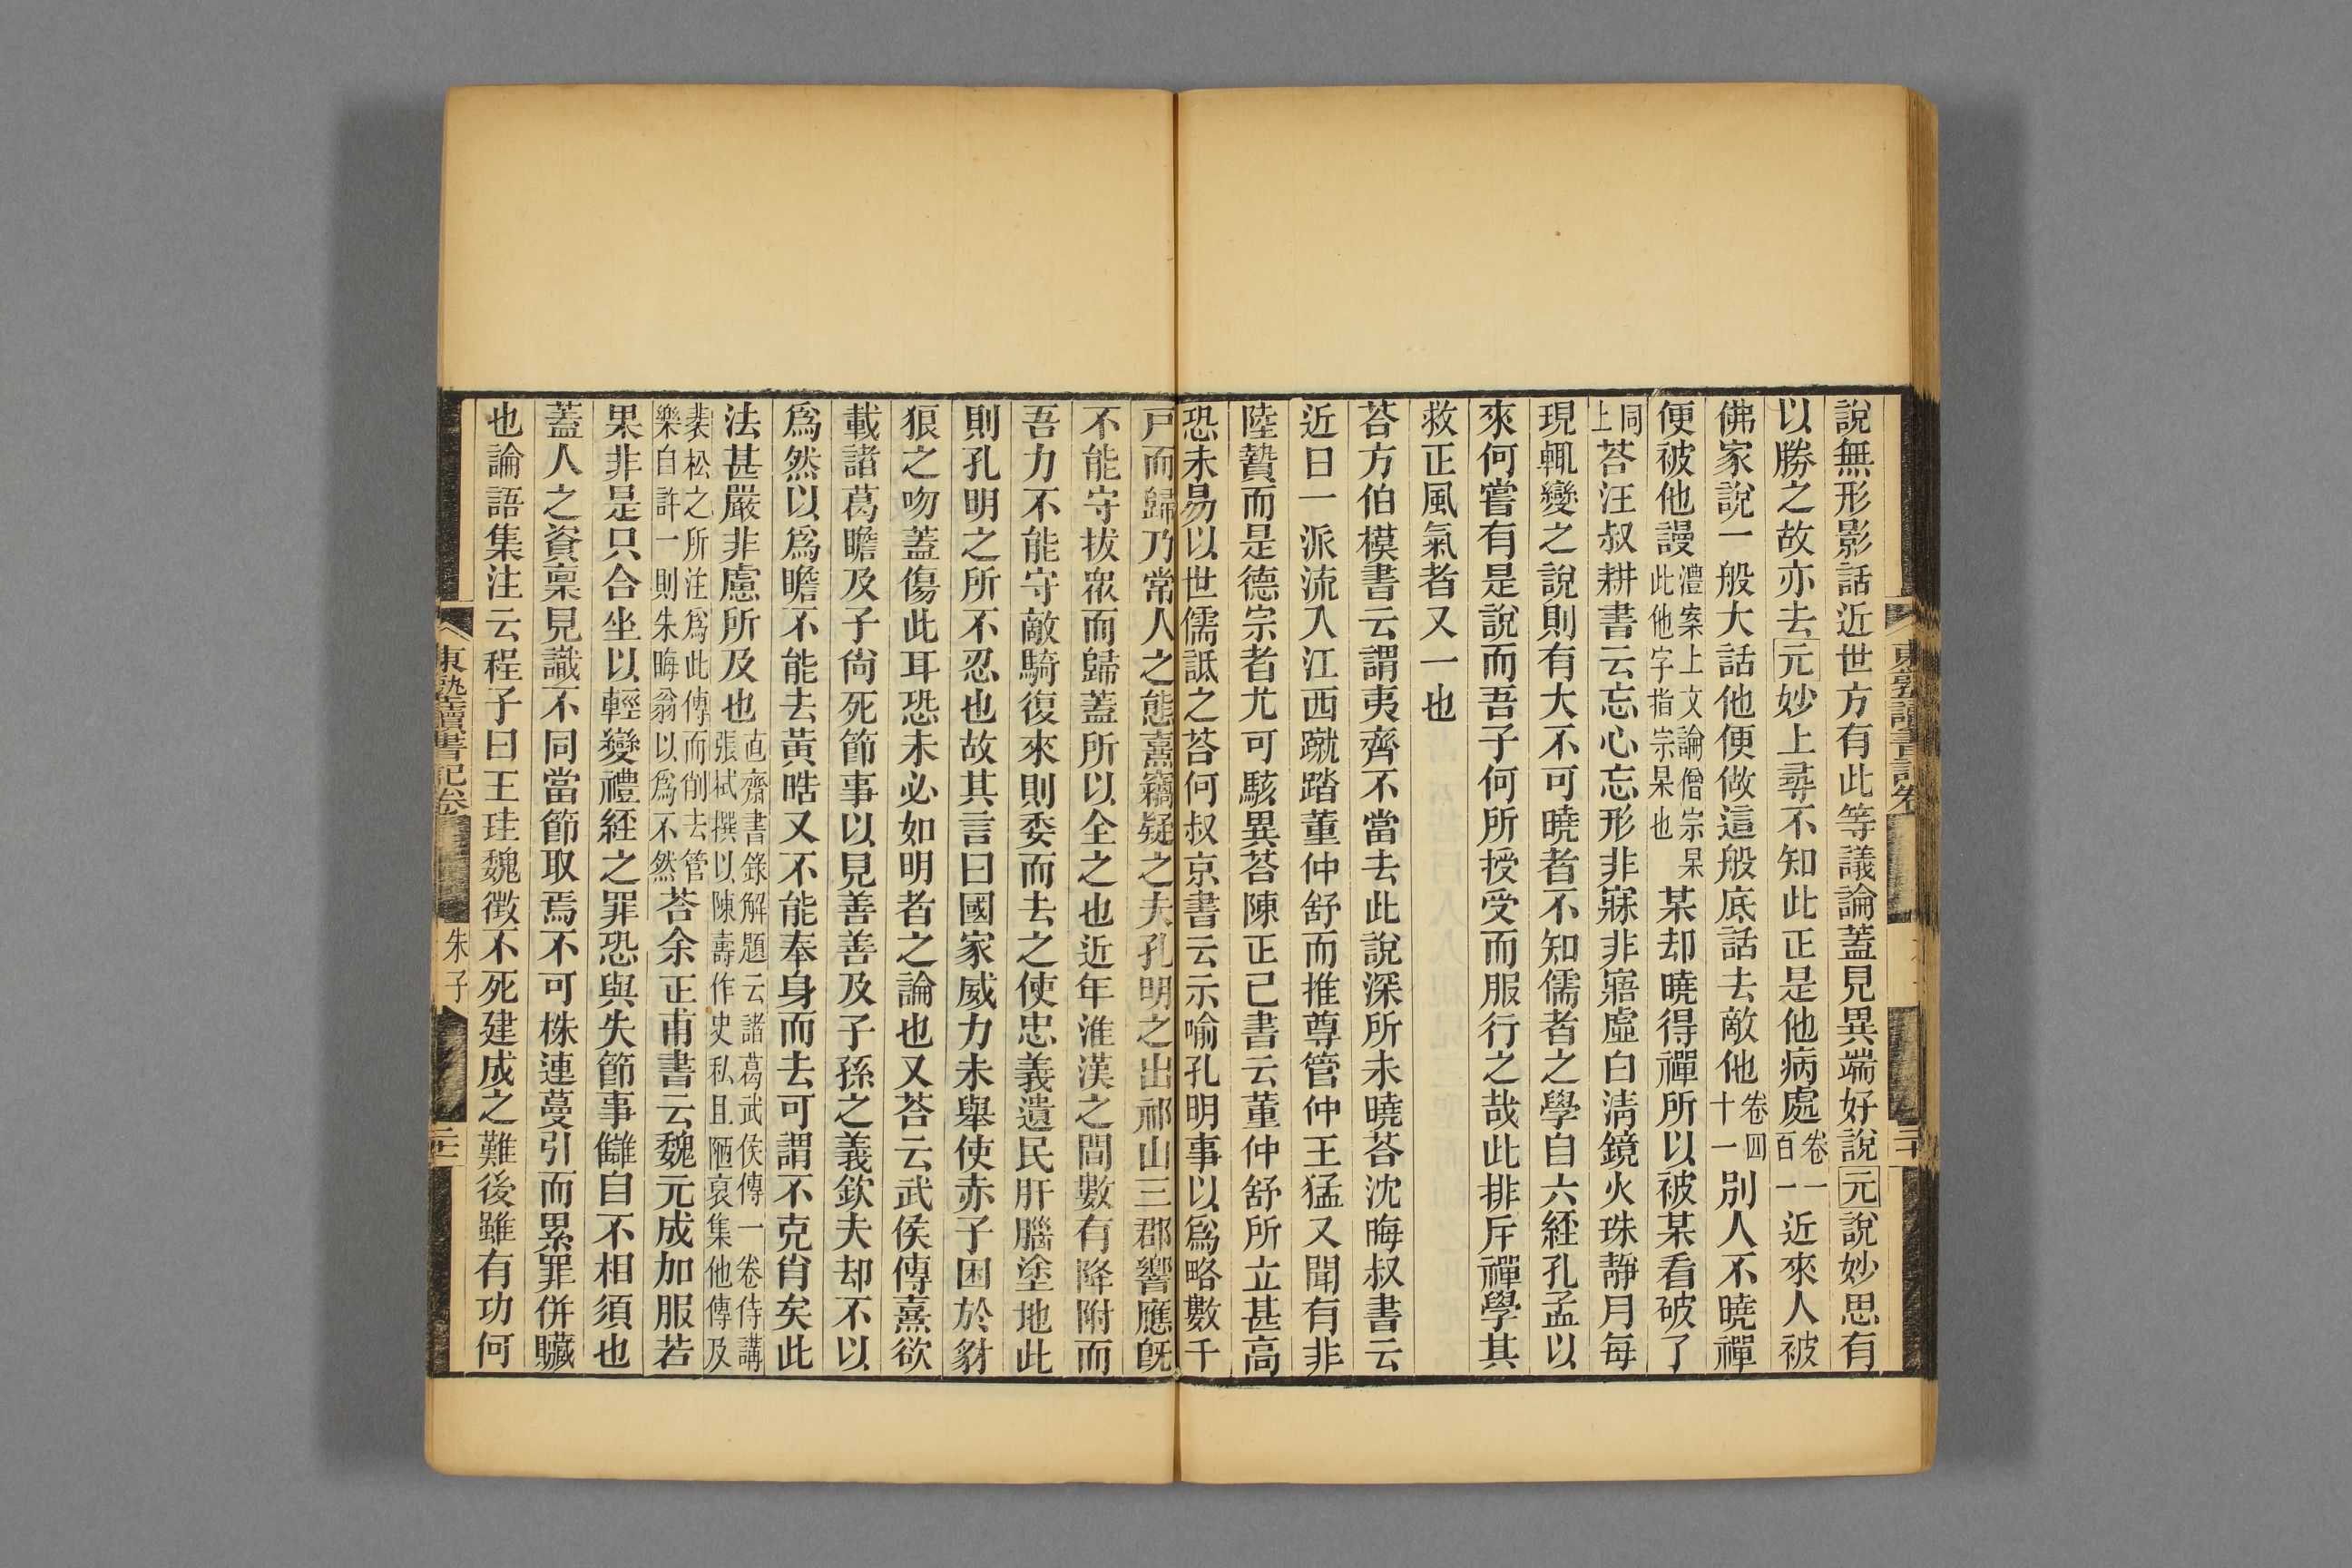 說無形影話近世方有此等議論蓋見異端好說元說妙思有
以勝之故亦去元妙上尋不知此正是他病處卷一百一近來人被
佛家說一般大話他便做這般底話去敵他卷四十一別人不曉禪
便被他謾澧案上文論僧宗杲此他字指宗杲也某却曉得禪所以被某看破了
同上荅汪叔耕書云忘心忘形非寐非寤虛白清鏡火珠靜月每
現輒變之說則有大不可曉者不知儒者之學自六經孔孟以
來何嘗有是說而吾子何所授受而服行之哉此排斥禪學其
救正風氣者又一也
荅方伯模書云謂夷齊不當去此說深所未曉荅沈晦叔書云
近日一派流入江西蹴踏董仲舒而推尊管仲王猛又聞有非
陸贄而是德宗者尤可駭異荅陳正己書云董仲舒所立甚高
恐未易以世儒詆之荅何叔京書云示喻孔明事以爲略數千
戸而歸乃常人之態熹竊疑之夫孔明之出祁山三郡響應旣
不能守拔衆而歸蓋所以全之也近年淮漢之間數有降附而
吾力不能守敵騎復來則委而去之使忠義遺民肝腦塗地此
則孔明之所不忍也故其言曰國家威力未舉使赤子困於豺
狼之吻蓋傷此耳恐未必如明者之論也又荅云武侯傳熹欲
載諸葛瞻及子尙死節事以見善善及子孫之義欽夫却不以
爲然以爲瞻不能去黃皓又不能奉身而去可謂不克肖矣此
法甚嚴非慮所及也直齋書錄解題云諸葛武侯傳一卷侍講張栻撰以陳壽作史私且陋裒集他傳及
裴松之所注爲此傳而削去管樂自許一則朱晦翁以爲不然荅余正甫書云魏元成加服若
果非是只合坐以輕變禮經之罪恐與失節事讎自不相須也
蓋人之資稟見識不同當節取焉不可株連蔓引而累罪併贓
也論語集注云程子曰王珪魏徵不死建成之難後雖有功何
東塾讀書記卷
朱子